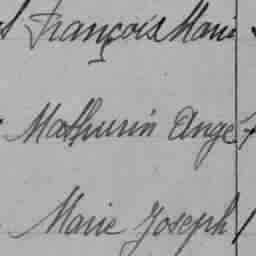 François Marie
Mathurin Ange
Marie Joseph